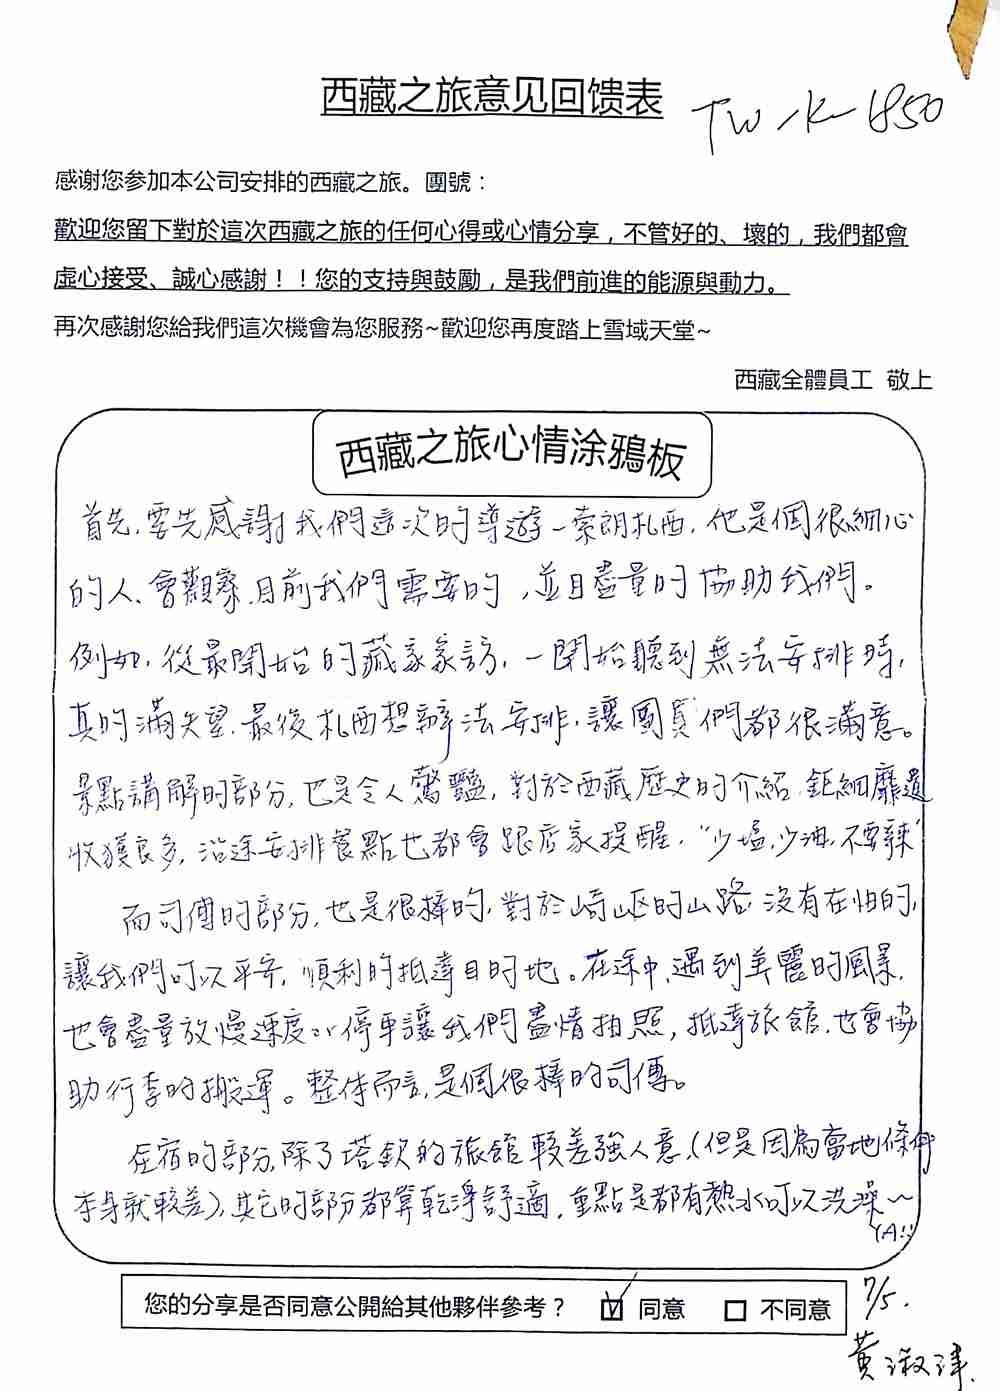 西藏之旅意见回馈表
TW-K-1850
感谢您参加本公司安排的西藏之旅。團號：
歡迎您留下對於這次西藏之旅的任何心得或心情分享，不管好的、壞的，我們都會
虛心接受、誠心感謝！！您的支持與鼓勵，是我們前進的能源與動力。
再次感謝您給我們這次機會為您服務~歡迎您再度踏上雪域天堂~
西藏全體員工 敬上
西藏之旅心情涂鴉板
首先，要先感謝我們這次的導遊－索朗札西，他是個很細心
的人、會觀察目前我們需要的，並且盡量的協助我們。
例如，從最開始的藏家家訪，一開始聽到無法安排時，
真的滿失望，最後札西想辦法安排，讓團員們都很滿意。
景點講解的部分，也是令人驚豔，對於西藏歷史的介紹，鉅細靡遺
收獲良多，沿途安排餐點也都會跟店家提醒，"少塩，少油，不要辣"
而司傅的部分，也是很棒的，對於崎嶇的山路沒有在怕的，
讓我們可以平安，順利的抵達目的地。在途中，遇到美麗的風景，
也會盡量放慢速度or停車讓我們盡情拍照，抵達旅館，也會協
助行李的搬運。整体而言，是個很棒的司傅。
在宿的部分，除了塔欽的旅館較差強人意，(但是因為當地條件
本身就較差)，其它的部分都算乾淨舒適，重點是都有熱水可以洗澡～
YA!!
您的分享是否同意公開給其他夥伴參考？ ☑ 同意 □ 不同意
7/5.
黃淑津